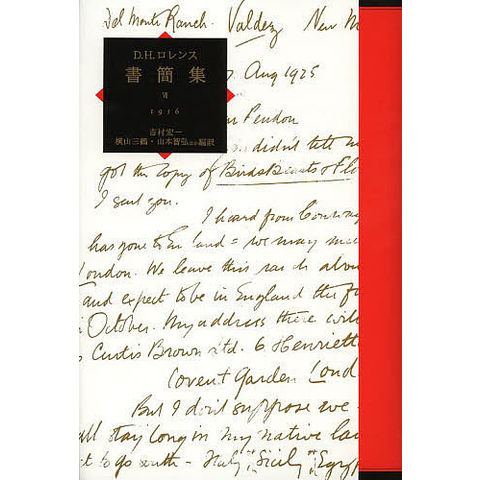 Del Monte Ranch. Valdez New M
D.H.ロレンス
書簡集
Ⅶ
1916
吉村宏一
横山三鶴・山本智弘ほか編訳
Aug 1925
Pendon
didn't tell me
got the copy of Birds Beasts & Flo
I sent you.
I heard from
has gone to England = we may
London. We leave this ranch abou
and expect to be in England the fi
October. My address there will
Curtis Brown Ltd. 6 Henriett
Covent Garden Lond
But I don't suppose we
all stay long in my native la
t to go south - Italy or Sicily or Egyp